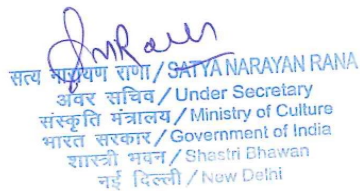 सत्य नारायण राणा / SATYA NARAYAN RANA
अवर सचिव / Under Secretary
संस्कृति मंत्रालय / Ministry of Culture
भारत सरकार / Government of India
शास्त्री भवन / Shastri Bhawan
नई दिल्ली / New Delhi